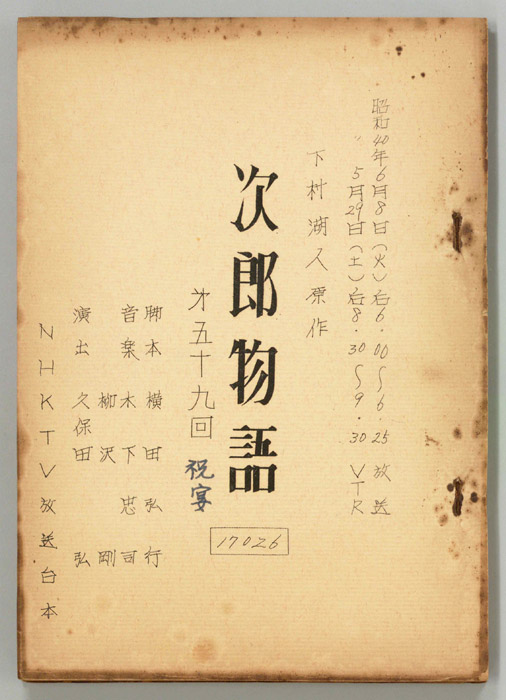 昭和40年6月8日(火)后6.00〜6.25放送
〃 5月29日(土)后8.30〜9.30VTR
下村湖人原作
次郎物語
17026
第五十九回 祝宴
脚本 横田弘行
音楽 木下忠司
柳沢 剛
演出 久保田 弘
NHKTV放送台本